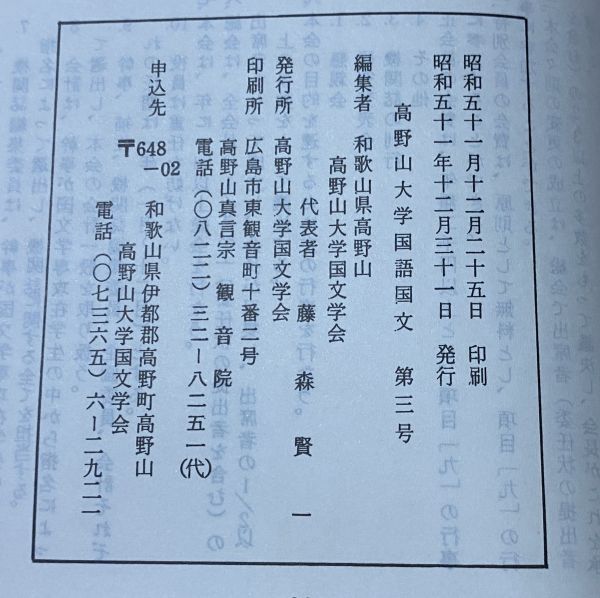 昭和五十一月十二月二十五日　印刷
昭和五十一年十二月三十一日　発行
高野山大学国語国文　第三号
編集者　和歌山県高野山
高野山大学国文学会
代表者　藤森賢一
発行所　高野山大学国文学会
印刷所　広島市東観音町十番二号
高野山真言宗　観音院
電話（〇八二二）三二ー八二五一（代）
申込先
〒648-02　和歌山県伊都郡高野町高野山
高野山大学国文学会
電話（〇七三六五）六ー二九二一